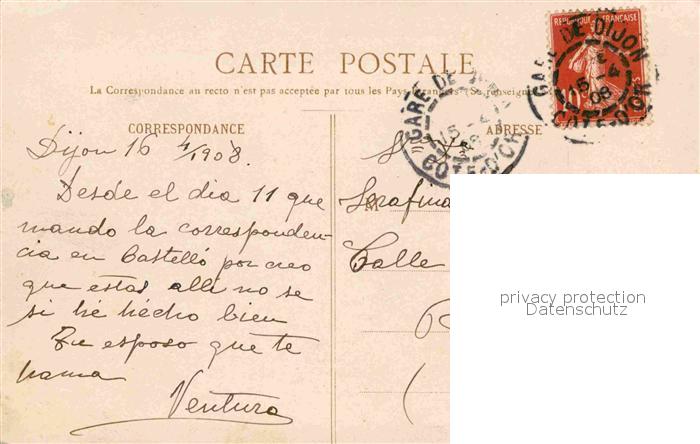 CARTE POSTALE
La Correspondance au recto n'est pas acceptée par tous les Pays Étrangers (Se renseigner
CORRESPONDANCE
ADRESSE
RÉPUBLIQUE FRANÇAISE
10
GARE DE DIJON
15 - 4
08
COTE-D'OR
GARE DE
15 - 4
COTE-D'OR
Dijon 16 4/1908.
Desde el dia 11 que
mando la corresponden-
cia en Castelló por creo
que estas alli no se
si hé hécho bien
Tu esposo que te
hama
Ventura
M
Serafina
Calle
privacy protection
Datenschutz